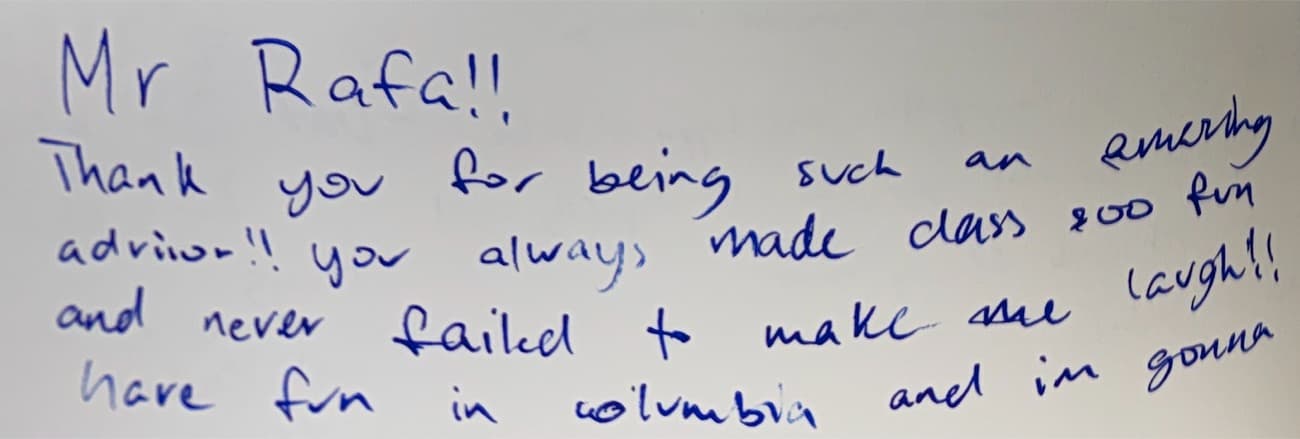 Mr Rafa!!
Thank you for being such an amazing
advisor!! you always made class soo fun
and never failed to make me laugh!!
have fun in columbia and im gonna